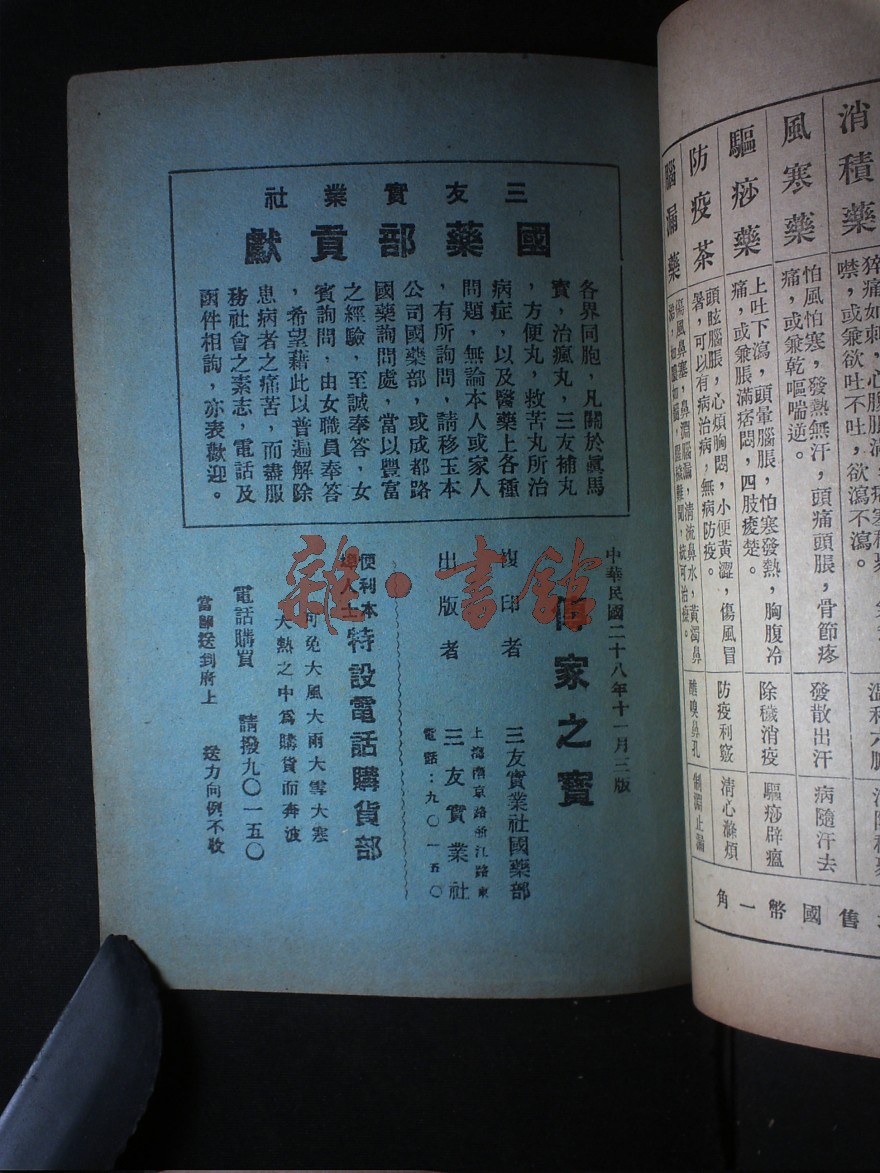 消積藥
猝痛如刺，心腹脹滿，
噤，或兼欲吐不吐，欲瀉不瀉。
風寒藥
怕風怕寒，發熱無汗，頭痛頭脹，骨節疼
痛，或兼乾嘔喘逆。
發散出汗
病隨汗去
驅痧藥
上吐下瀉，頭暈腦脹，怕寒發熱，胸腹冷
痛，或兼脹滿痞悶，四肢痠楚。
除穢消疫
驅痧辟瘟
防疫茶
頭眩腦脹，心煩胸悶，小便黃澀，傷風冒
暑，可以有病治病，無病防疫。
防疫利竅
清心滌煩
腦漏藥
傷風鼻塞，鼻淵腦漏，清流鼻水，黃濁鼻
嗅鼻孔
止漏
售國幣一角
三友實業社
國藥部貢獻
各界同胞，凡關於眞馬
寶，治瘋丸，三友補丸
，方便丸，救苦丸所治
病症，以及醫藥上各種
問題，無論本人或家人
，有所詢問，請移玉本
公司國藥部，或成都路
國藥詢問處，當以豐富
之經驗，至誠奉答，女
賓詢問，由女職員奉答
，希望藉此以普遍解除
患病者之痛苦，而盡服
務社會之素志，電話及
函件相詢，亦表歡迎。
中華民國二十八年十一月三版
傳家之寶
複印者
三友實業社國藥部
出版者
上海南京路浙江路東
三友實業社
電話：九〇一五〇
便利本
埠人士
特設電話購貨部
可免大風大雨大雪大寒
大熱之中爲購貨而奔波
電話購買 請撥九〇一五〇
當歸送到府上 送力向例不收
雜·書館